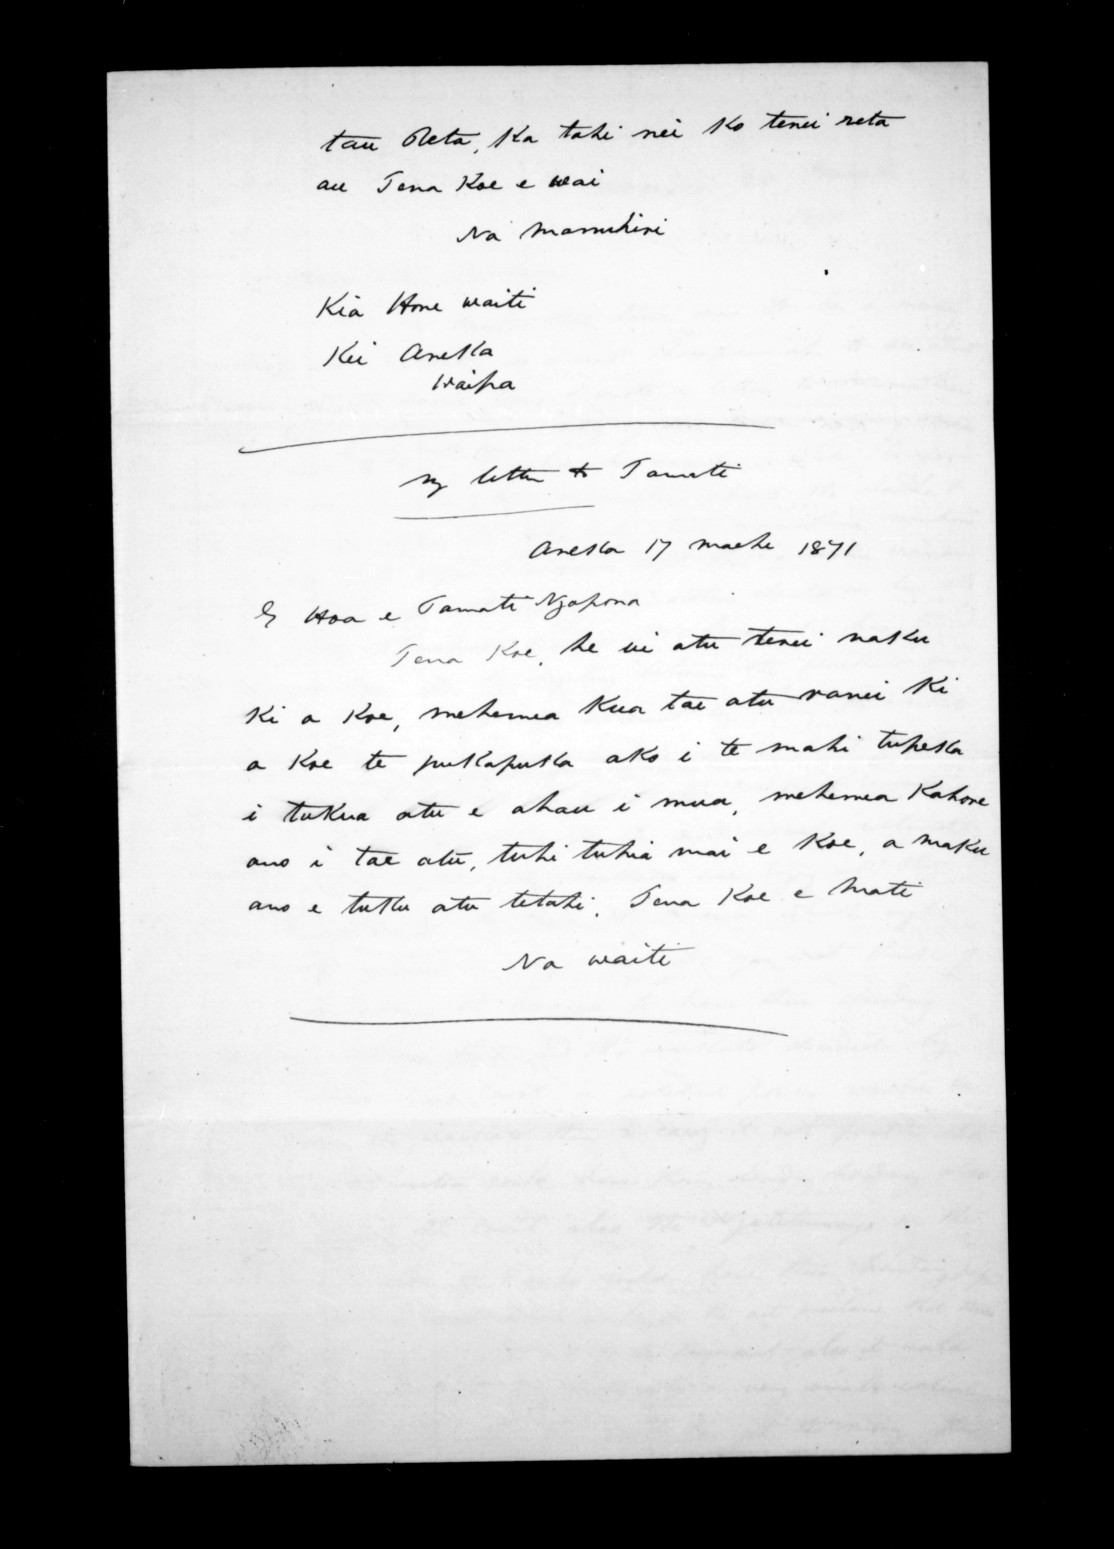 tau Reta, Ka tahi nei ko tenei reta
au Tena Koe e Wai
Na Manuhiri
Kia Hone Waiti
Kei Aneka
Waipa
My letter to Tamati
Aneka 17 Maehe 1871
E Hoa e Tamati Ngapora
Tena Koe, he ui atu tenei naku
ki a Koe, mehemea Kua tae atu ranei ki
a Koe te pukapuka ako i te mahi tupeka
i tukua atu e ahau i mua, mehemea Kahore
ano i tae atu, tuhi tuhia mai e Koe, a maku
ano e tuku atu tetahi. Tena Koe e Mati
Na Waiti